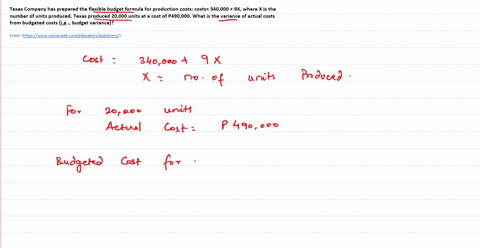 Texas Company has prepared the flexible budget formula for production costs: costs= 340,000 + 9X, where X is the
number of units produced. Texas produced 20,000 units at a cost of P490,000. What is the variance of actual costs
from budgeted costs (i.e .. budget variance)?
From <https://www.numerade.com/educators/questions/>
Cost = 340,000 + 9X
X = no. of units Produced.
For 20,000 units
Actual Cost = P 490,000
Budgeted Cost for